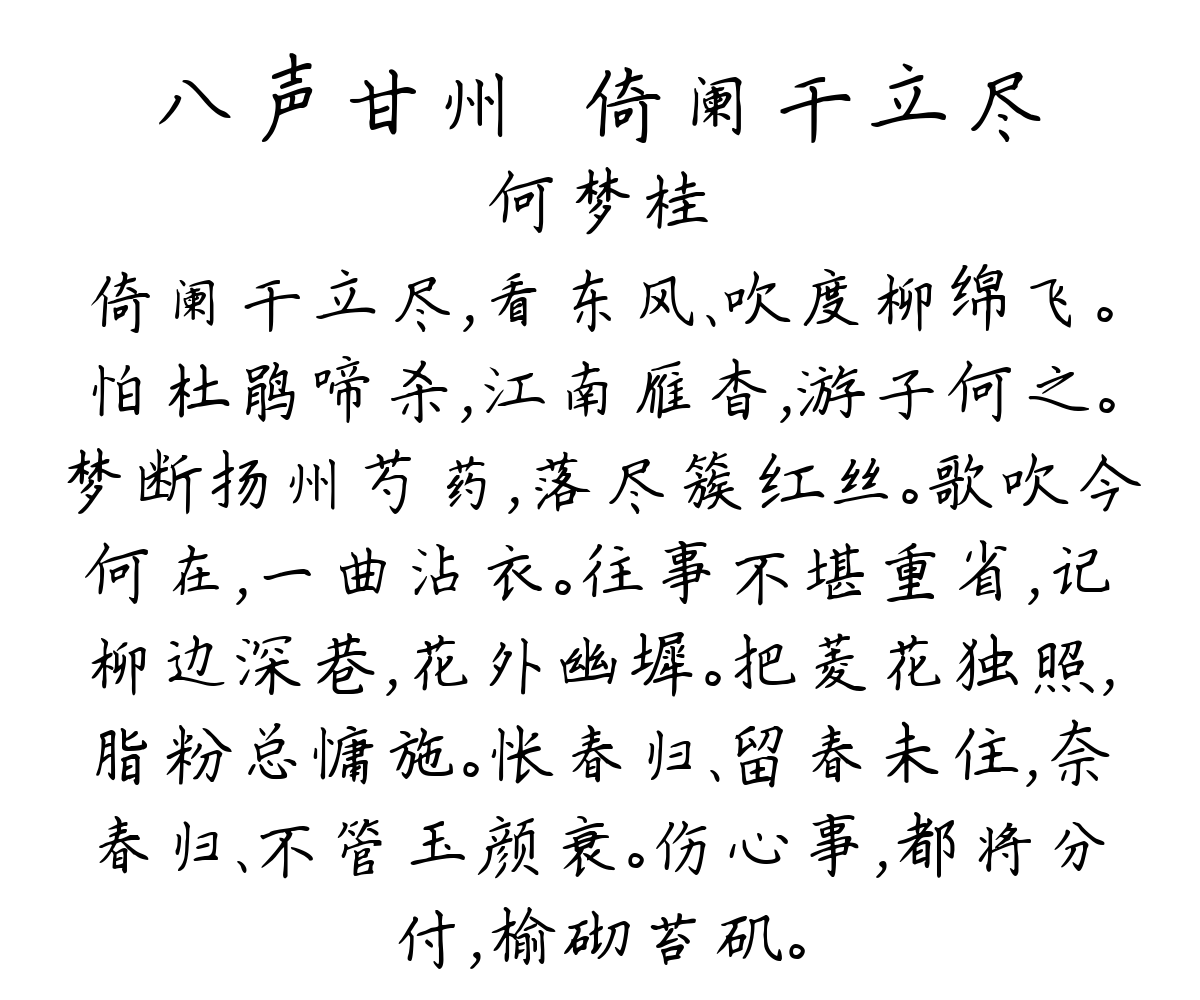 八声甘州 倚阑干立尽
何梦桂
倚阑干立尽,看东风、吹度柳绵飞。
怕杜鹃啼杀,江南雁杳,游子何之。
梦断扬州芍药,落尽簇红丝。歌吹今
何在,一曲沾衣。往事不堪重省,记
柳边深巷,花外幽墀。把菱花独照,
脂粉总慵施。怅春归、留春未住,奈
春归、不管玉颜衰。伤心事,都将分
付,榆砌苔矶。